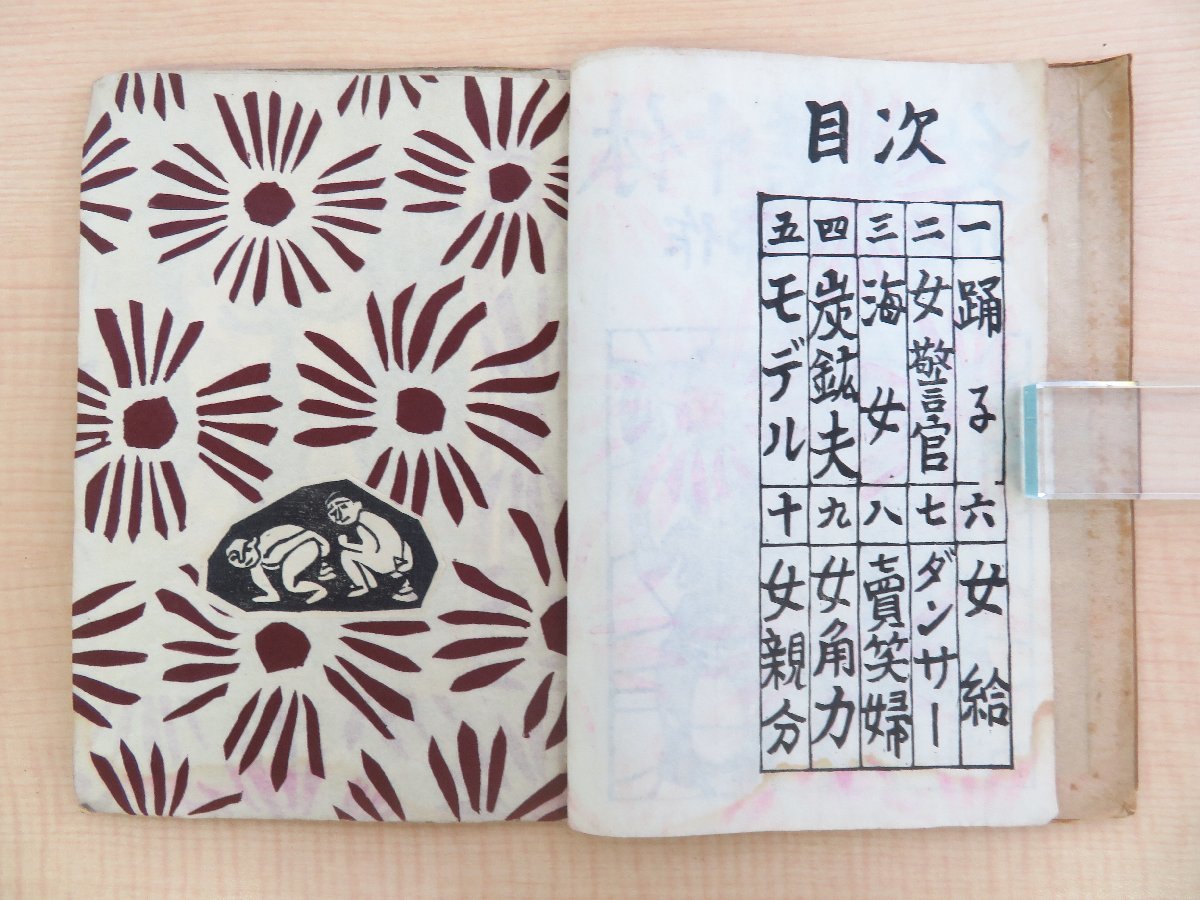 目次
一 踊子
二 女警官
三 海女
四 炭鉱夫
五 モデル
六 女給
七 ダンサー
八 賣笑婦
九 女角力
十 女親分